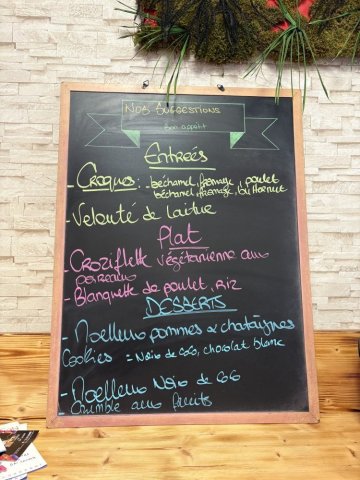 NOS SUGGESTIONS
Bon appétit
Entrées
- Croques : béchamel, fromage, poulet
béchamel, fromage, butternut
- Velouté de laitue
Plat
- Croziflette végétarienne aux
poireaux
- Blanquette de poulet, riz
DESSERTS
- Moelleux pommes & chataîgnes
Cookies = Noix de coco, chocolat blanc
- Moelleux Noix de coco
- Crumble aux fruits